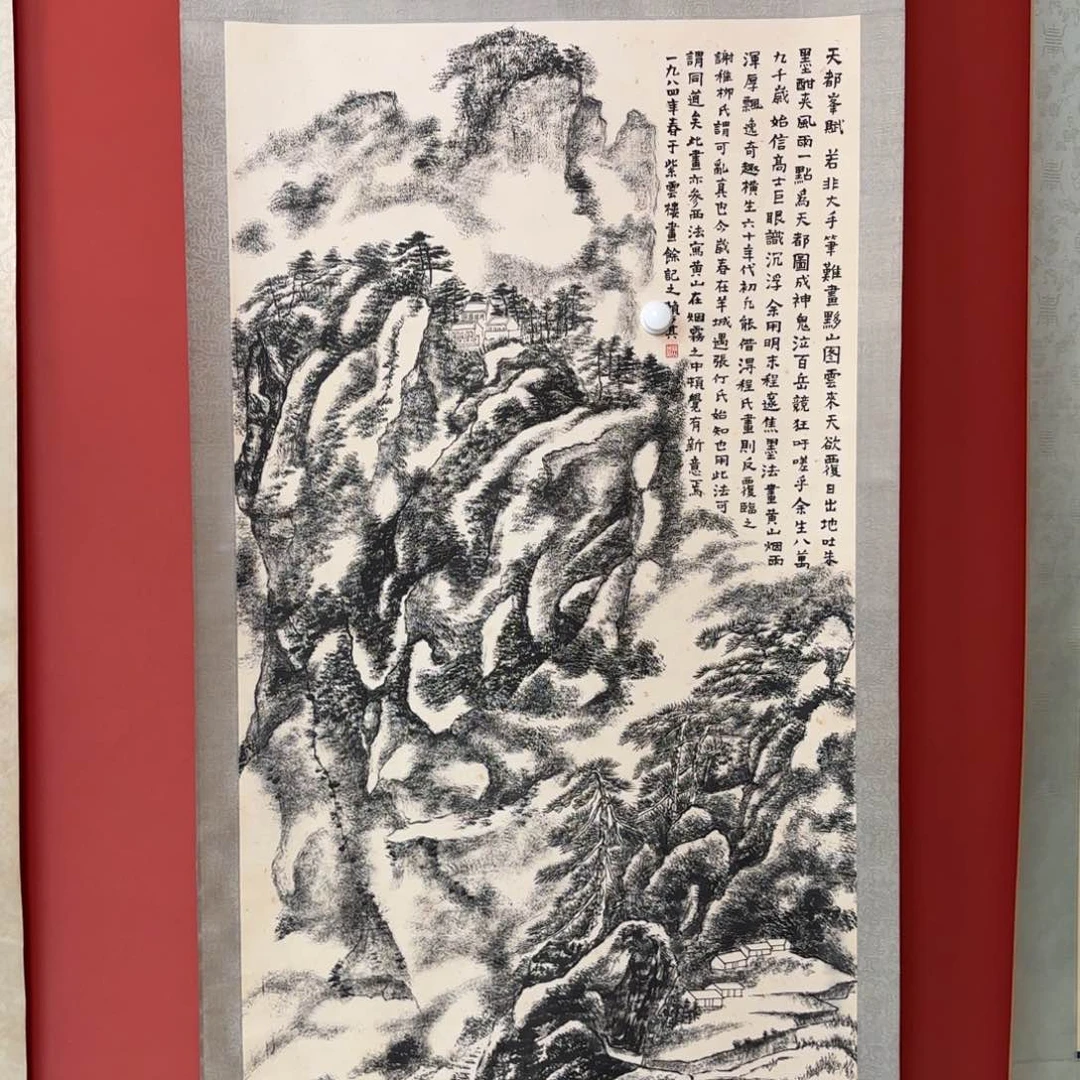 天都峯賦 若非大手筆難畫黟山图雲來天欲覆日出地吐朱
墨酣夾風雨一點爲天都圖成神鬼泣百岳競狂吁嗟乎余生八萬
九千歲始信高士巨眼識沉浮余用明末程邃焦墨法畫黄山烟雨
渾厚飄逸奇趣橫生六十年代初凡能借得程氏畫則反覆臨之
謝稚柳氏謂可亂真也今歲春在羊城遇張仃氏始知也用此法可
謂同道矣此畫亦參西法寫黄山在烟霧之中頓覺有新意焉
一九八四年春于紫雲樓畫餘記之